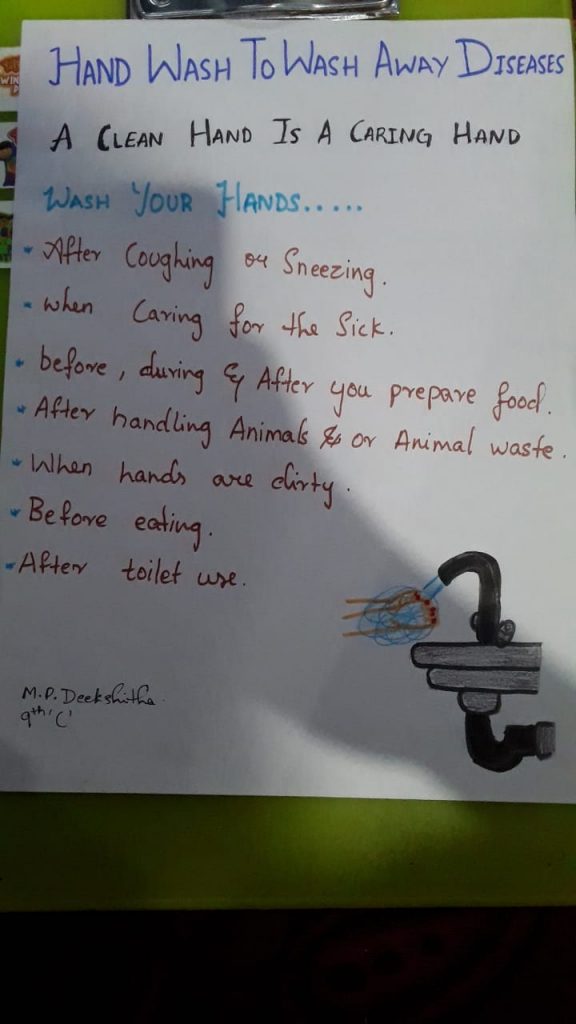 HAND WASH TO WASH AWAY DISEASES
A CLEAN HAND IS A CARING HAND
WASH YOUR HANDS.....
• After Coughing or Sneezing.
• when Caring for the Sick.
• before, during & After you prepare food.
• After handling Animals & or Animal waste.
• When hands are dirty.
• Before eating.
• After toilet use.
M.P. Deekshitha
9th 'C'
WIN